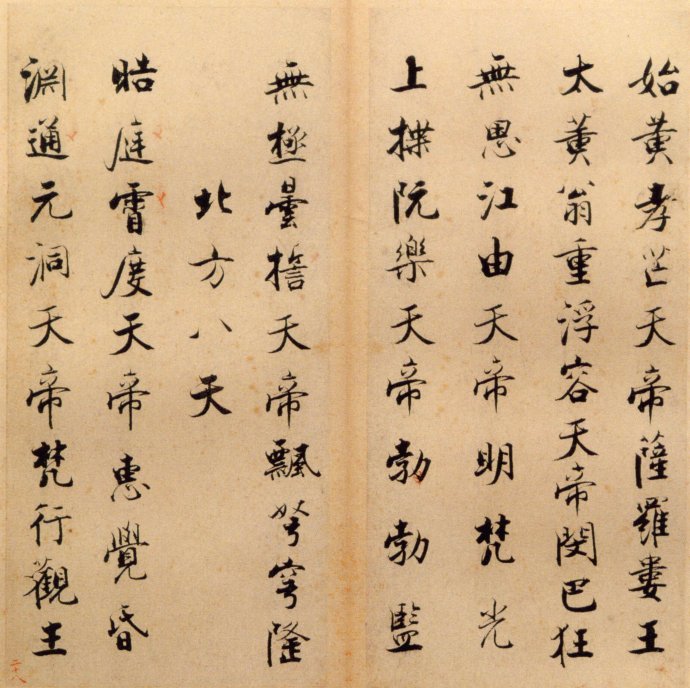 始黃孝芒天帝薩羅婁王
太黃翁重浮容天帝閔巴狂
無思江由天帝明梵光
上揲阮樂天帝勃勃監
無極曇誓天帝飄弩穹隆
北方八天
皓庭霄度天帝惠覺昏
淵通元洞天帝梵行觀生
二十八